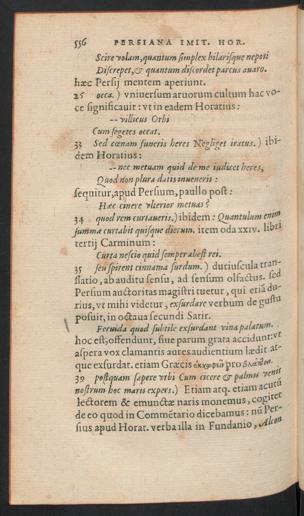 556 PERSIANA IMIT. HOR.
Scire volam, quantum simplex hilarisque nepoti
Discrepet, & quantum discordet parcus avaro.
hæc Persij mentem aperiunt.
26 occa.) vniuersum aruorum cultum hac vo-
ce significauit: vt in eadem Horatius:
-- villicus Orbi
Cum segetes occat.
33 Sed cœnam funeris heres Negliget iratus.) ibi-
dem Horatius:
-- nec metuam quid de me iudicet heres,
Quod non plura datis inuenerit:
sequitur, apud Persium, paullo post:
Hæc cinere vlterior metuas?
34 quod rem curtaueris.) ibidem: Quantulum enim
summæ curtabit quisque dierum. item oda xxiv. libri
tertij Carminum:
Curta nescio quid semper abest rei.
35 seu spirent cinnama surdum.) duriuscula tran-
slatio, ab auditu sensu, ad sensum olfactus. sed
Persium auctoritas magistri tuetur, qui etiã du-
rius, vt mihi videtur, exsurdare verbum de gustu
posuit, in octaua secundi Satir.
Feruida quod subtile exsurdant vina palatum.
hoc est, offendunt, siue parum grata accidunt: vt
aspera vox clamantis aures audientium lædit at-
que exsurdat. etiam Græcis pro
39 postquam sapere vrbi Cum cicere & palmis venit
nostrum hoc maris expers.) Etiam atq. etiam acuti
lectorem & emunctæ naris monemus, cogitet
de eo quod in Commẽtario dicebamus: nũ Per-
sius apud Horat. verba illa in Fundanio, Alcon